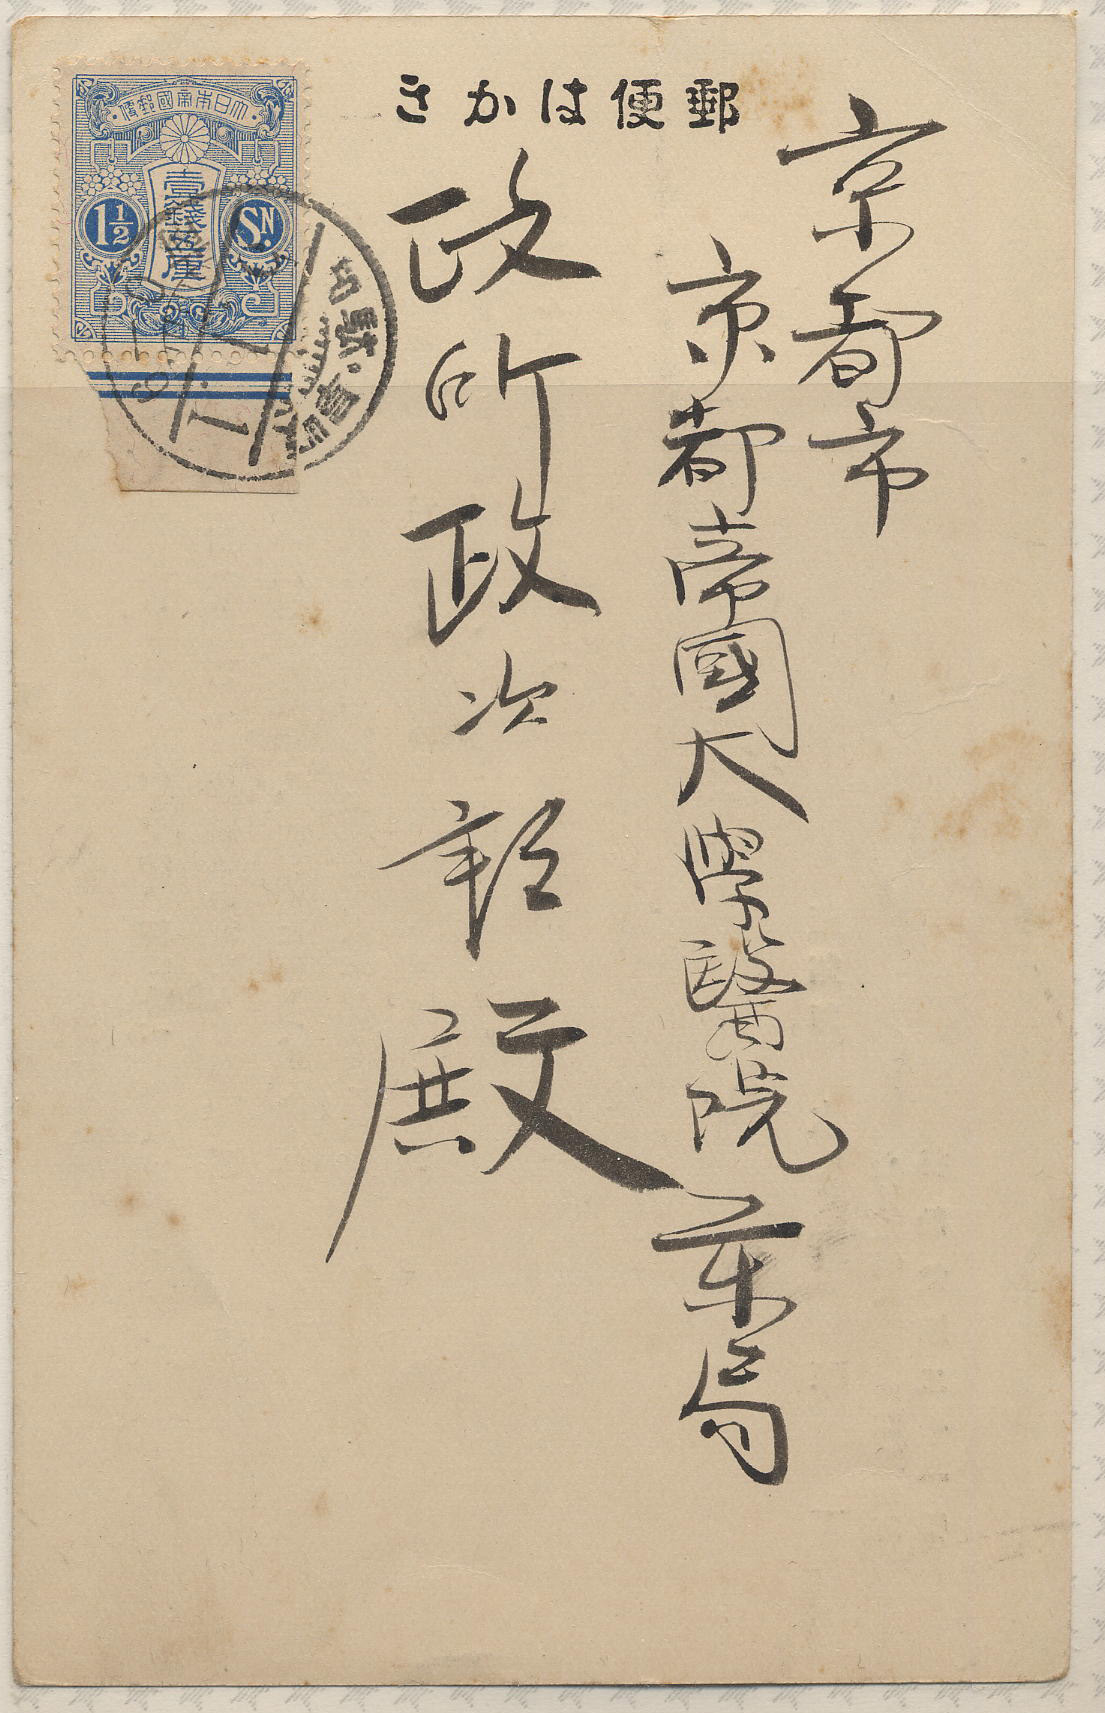 郵便はかき
大日本帝國郵便
壹錢五厘
1½
SN.
京都市
京都帝國大學醫院藥局
政所政次郎殿